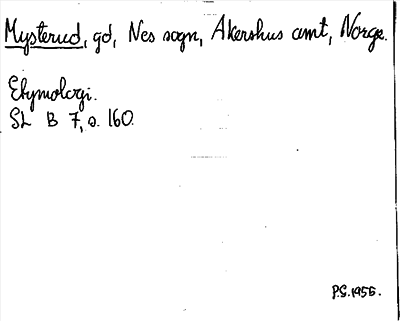 Mysterud, gd, Nes sogn, Akershus amt, Norge.
Etymologi.
SL B 7, s. 160.
P.S. 1955.